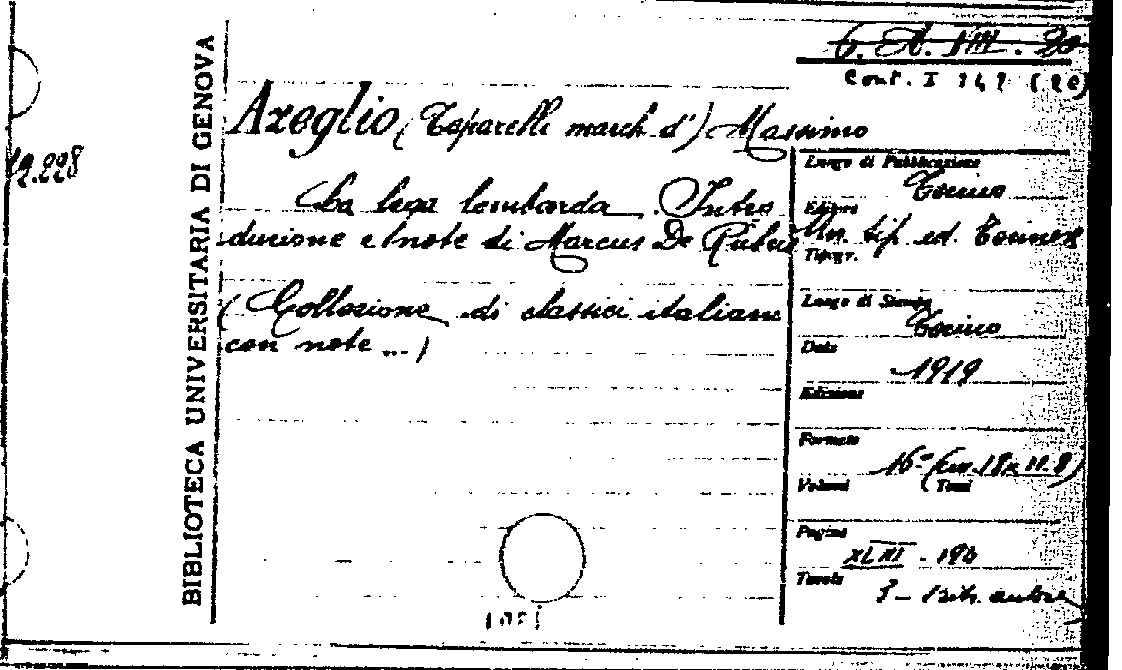 6. A. VIII. 20
Conf. I 147 (20)
19.228
BIBLIOTECA UNIVERSITARIA DI GENOVA
Azeglio (Taparelli march. d') Massimo
La lega lombarda. Intro
duzione e note di Marcus De Rubris
(Collezione di classici italiani
con note ...)
Luogo di Pubblicazione
Torino
Editore
Un. tip. ed. Torinese
Tipogr.
Luogo di Stampa
Torino
Data
1919
Edizione
Formato
16° (cm. 18x11.8)
Volumi Tomi
Pagine
XLIII - 190
Tavole
- ritr. autore